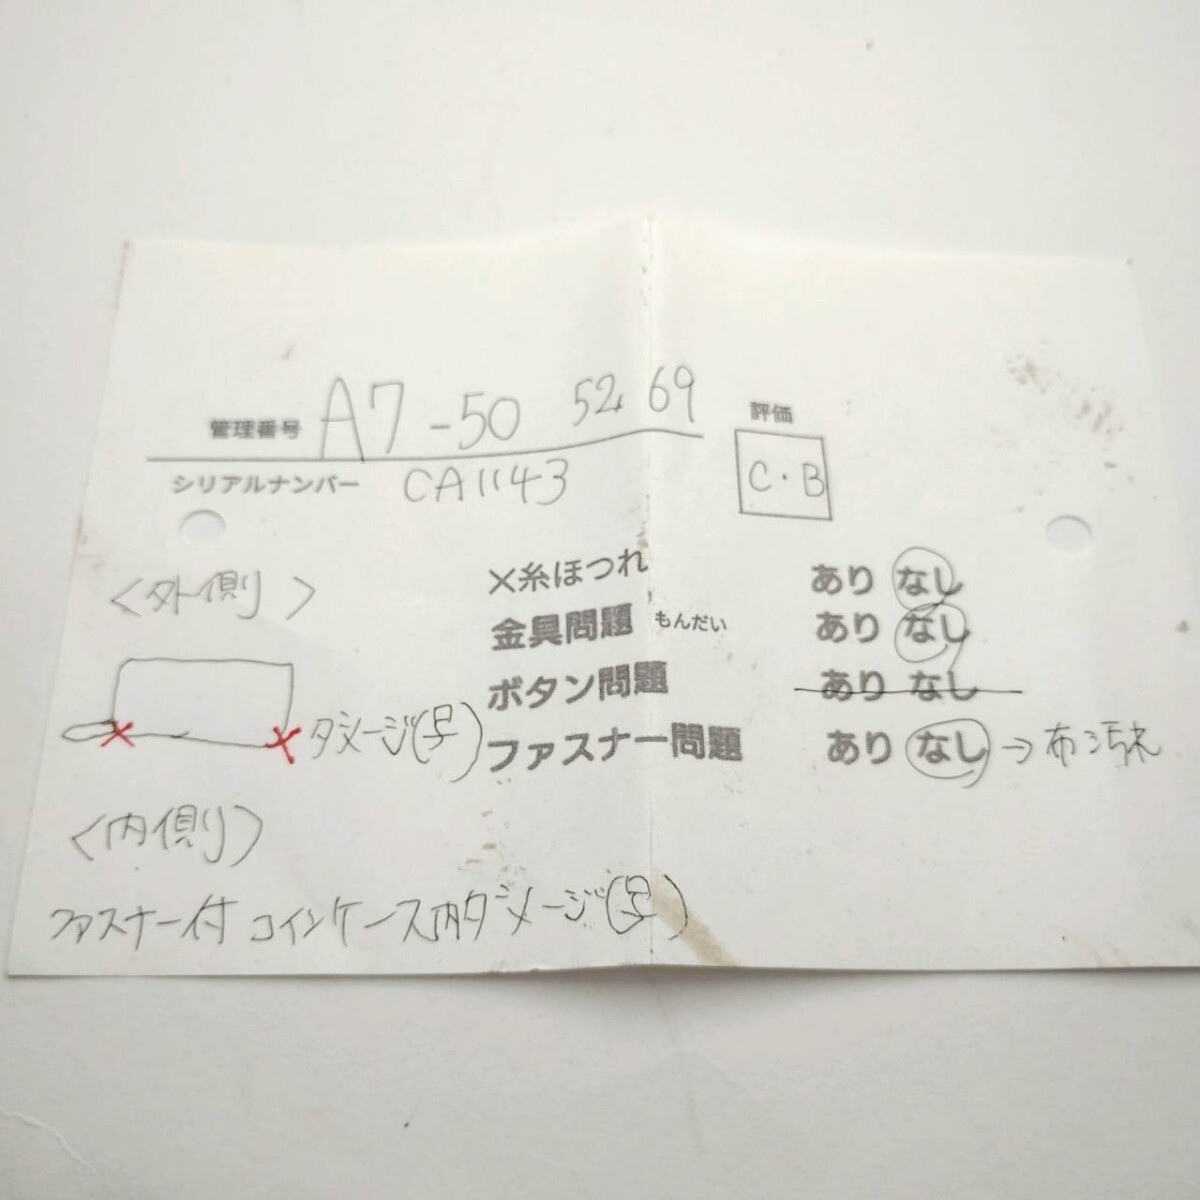 管理番号 A7-50 52 69
シリアルナンバー CA1143
評価
C・B
<外側>
×糸ほつれ あり なし
金具問題 もんだい あり なし
ボタン問題 あり なし
ファスナー問題 あり なし → 布汚れ
ダメージ(号)
<内側>
ファスナー付コインケース内ダメージ(号)